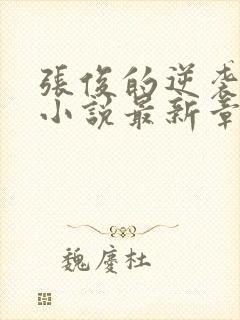 張俊的逆袭
小説最新章
魏慶杜